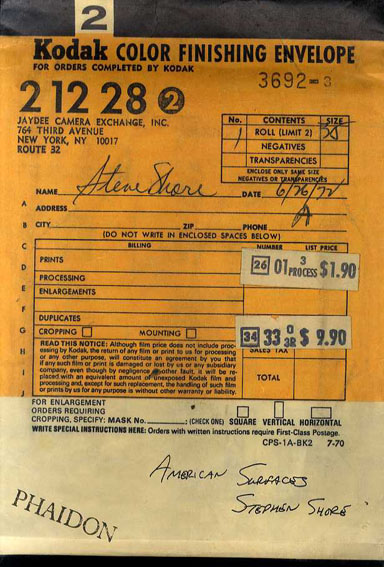 2
Kodak COLOR FINISHING ENVELOPE
FOR ORDERS COMPLETED BY KODAK
3692 3
2 12 28 2
JAYDEE CAMERA EXCHANGE, INC.
764 THIRD AVENUE
NEW YORK, NY 10017
ROUTE 32
No. CONTENTS SIZE
1 ROLL (LIMIT 2)
NEGATIVES
TRANSPARENCIES
ENCLOSE ONLY SAME SIZE
NEGATIVES OR TRANSPARENCIES
NAME Steve Shore DATE 6/26/72
ADDRESS A
CITY ZIP PHONE
(DO NOT WRITE IN ENCLOSED SPACES BELOW)
BILLING NUMBER LIST PRICE
PRINTS
26 01 3 PROCESS $1.90
PROCESSING
ENLARGEMENTS
DUPLICATES
34 33 0 3R $ 9.90
CROPPING MOUNTING
SALES TAX
READ THIS NOTICE: Although film price does not include pro-
cessing by Kodak, the return of any film or print to us for processing
or any other purpose, will constitute an agreement by you that
if any such film or print is damaged or lost by us or any subsidiary
company, even though by negligence or other fault, it will be re-
placed with an equivalent amount of unexposed Kodak film and
processing and, except for such replacement, the handling of such film
or prints by us for any purpose is without other warranty or liability.
TOTAL
A
B
C
D
E
F
G
H
I
J
FOR ENLARGEMENT
ORDERS REQUIRING
CROPPING, SPECIFY: MASK No. ; (CHECK ONE) SQUARE VERTICAL HORIZONTAL
WRITE SPECIAL INSTRUCTIONS HERE: Orders with written instructions require First-Class Postage.
CPS-1A-BK2 7-70
AMERICAN SURFACES
STEPHEN SHORE
PHAIDON